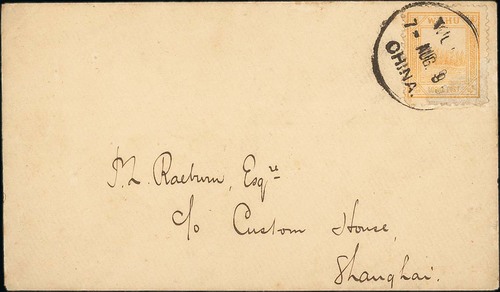 WUHU
7 - AUG. 9
CHINA.
P. L. Raeburn, Esqre
c/o Custom House,
Shanghai.